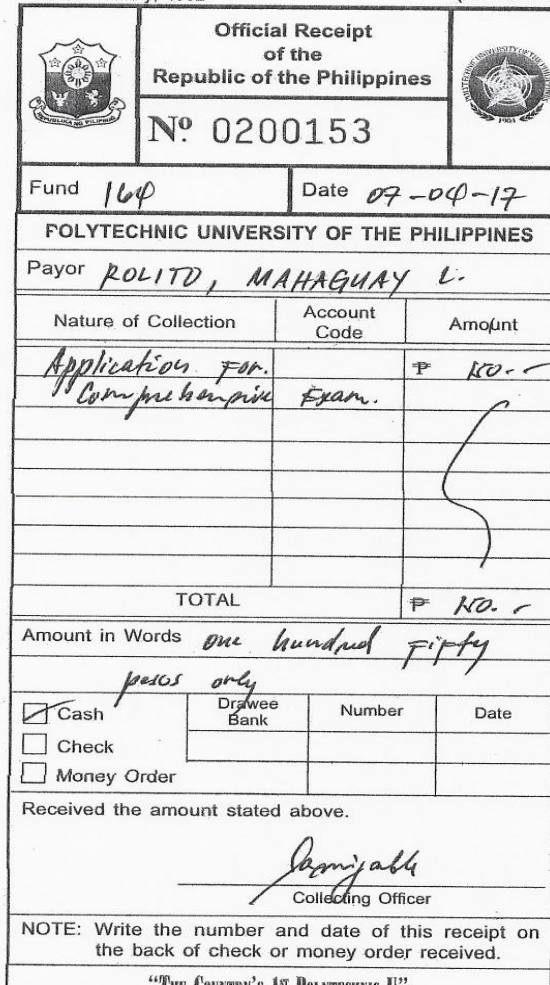 Official Receipt
of the
Republic of the Philippines
REPUBLIKA NG PILIPINAS
POLYTECHNIC UNIVERSITY OF THE PHILIPPINES
1904
Nº 0200153
Fund 164
Date 07-04-17
POLYTECHNIC UNIVERSITY OF THE PHILIPPINES
Payor ROLITO, MAHAGUAY L.
Nature of Collection Account Code Amount
Application For. ₱ 150.-
Comprehensive Exam.
TOTAL ₱ 150.-
Amount in Words one hundred fifty
pesos only
Cash Drawee Bank Number Date
Check
Money Order
Received the amount stated above.
Collecting Officer
NOTE: Write the number and date of this receipt on
the back of check or money order received.
"The Country's 1st Polytechnic U"